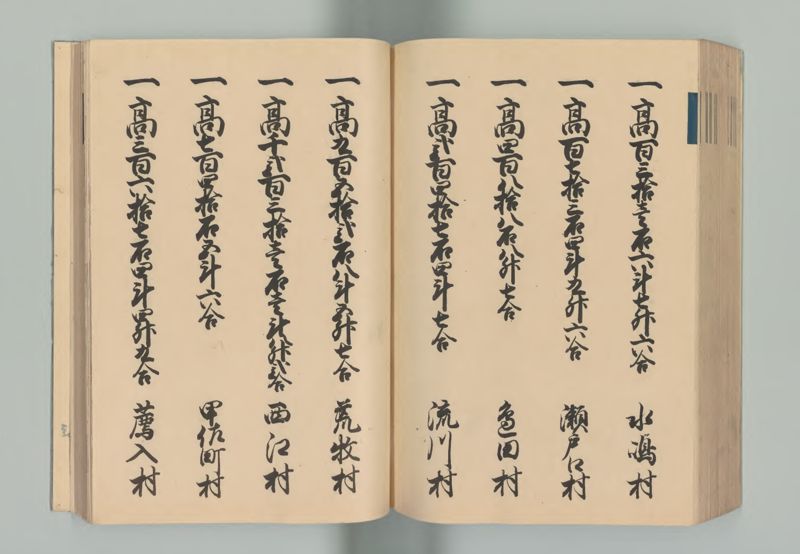 一高百三拾壱石六斗七升六合 水嶋村
一高百七拾三石四斗九升六合 瀬戸口村
一高四百八拾八石八升七合 亀田村
一高弐百四拾七石四斗七合 流川村
一高九百五拾弐石八斗五升七合 荒牧村
一高千弐百三拾壱石壱斗升弐合 西江村
一高七百四拾石五斗六合 甲佐町村
一高三百六拾七石四斗四升九合 薦入村